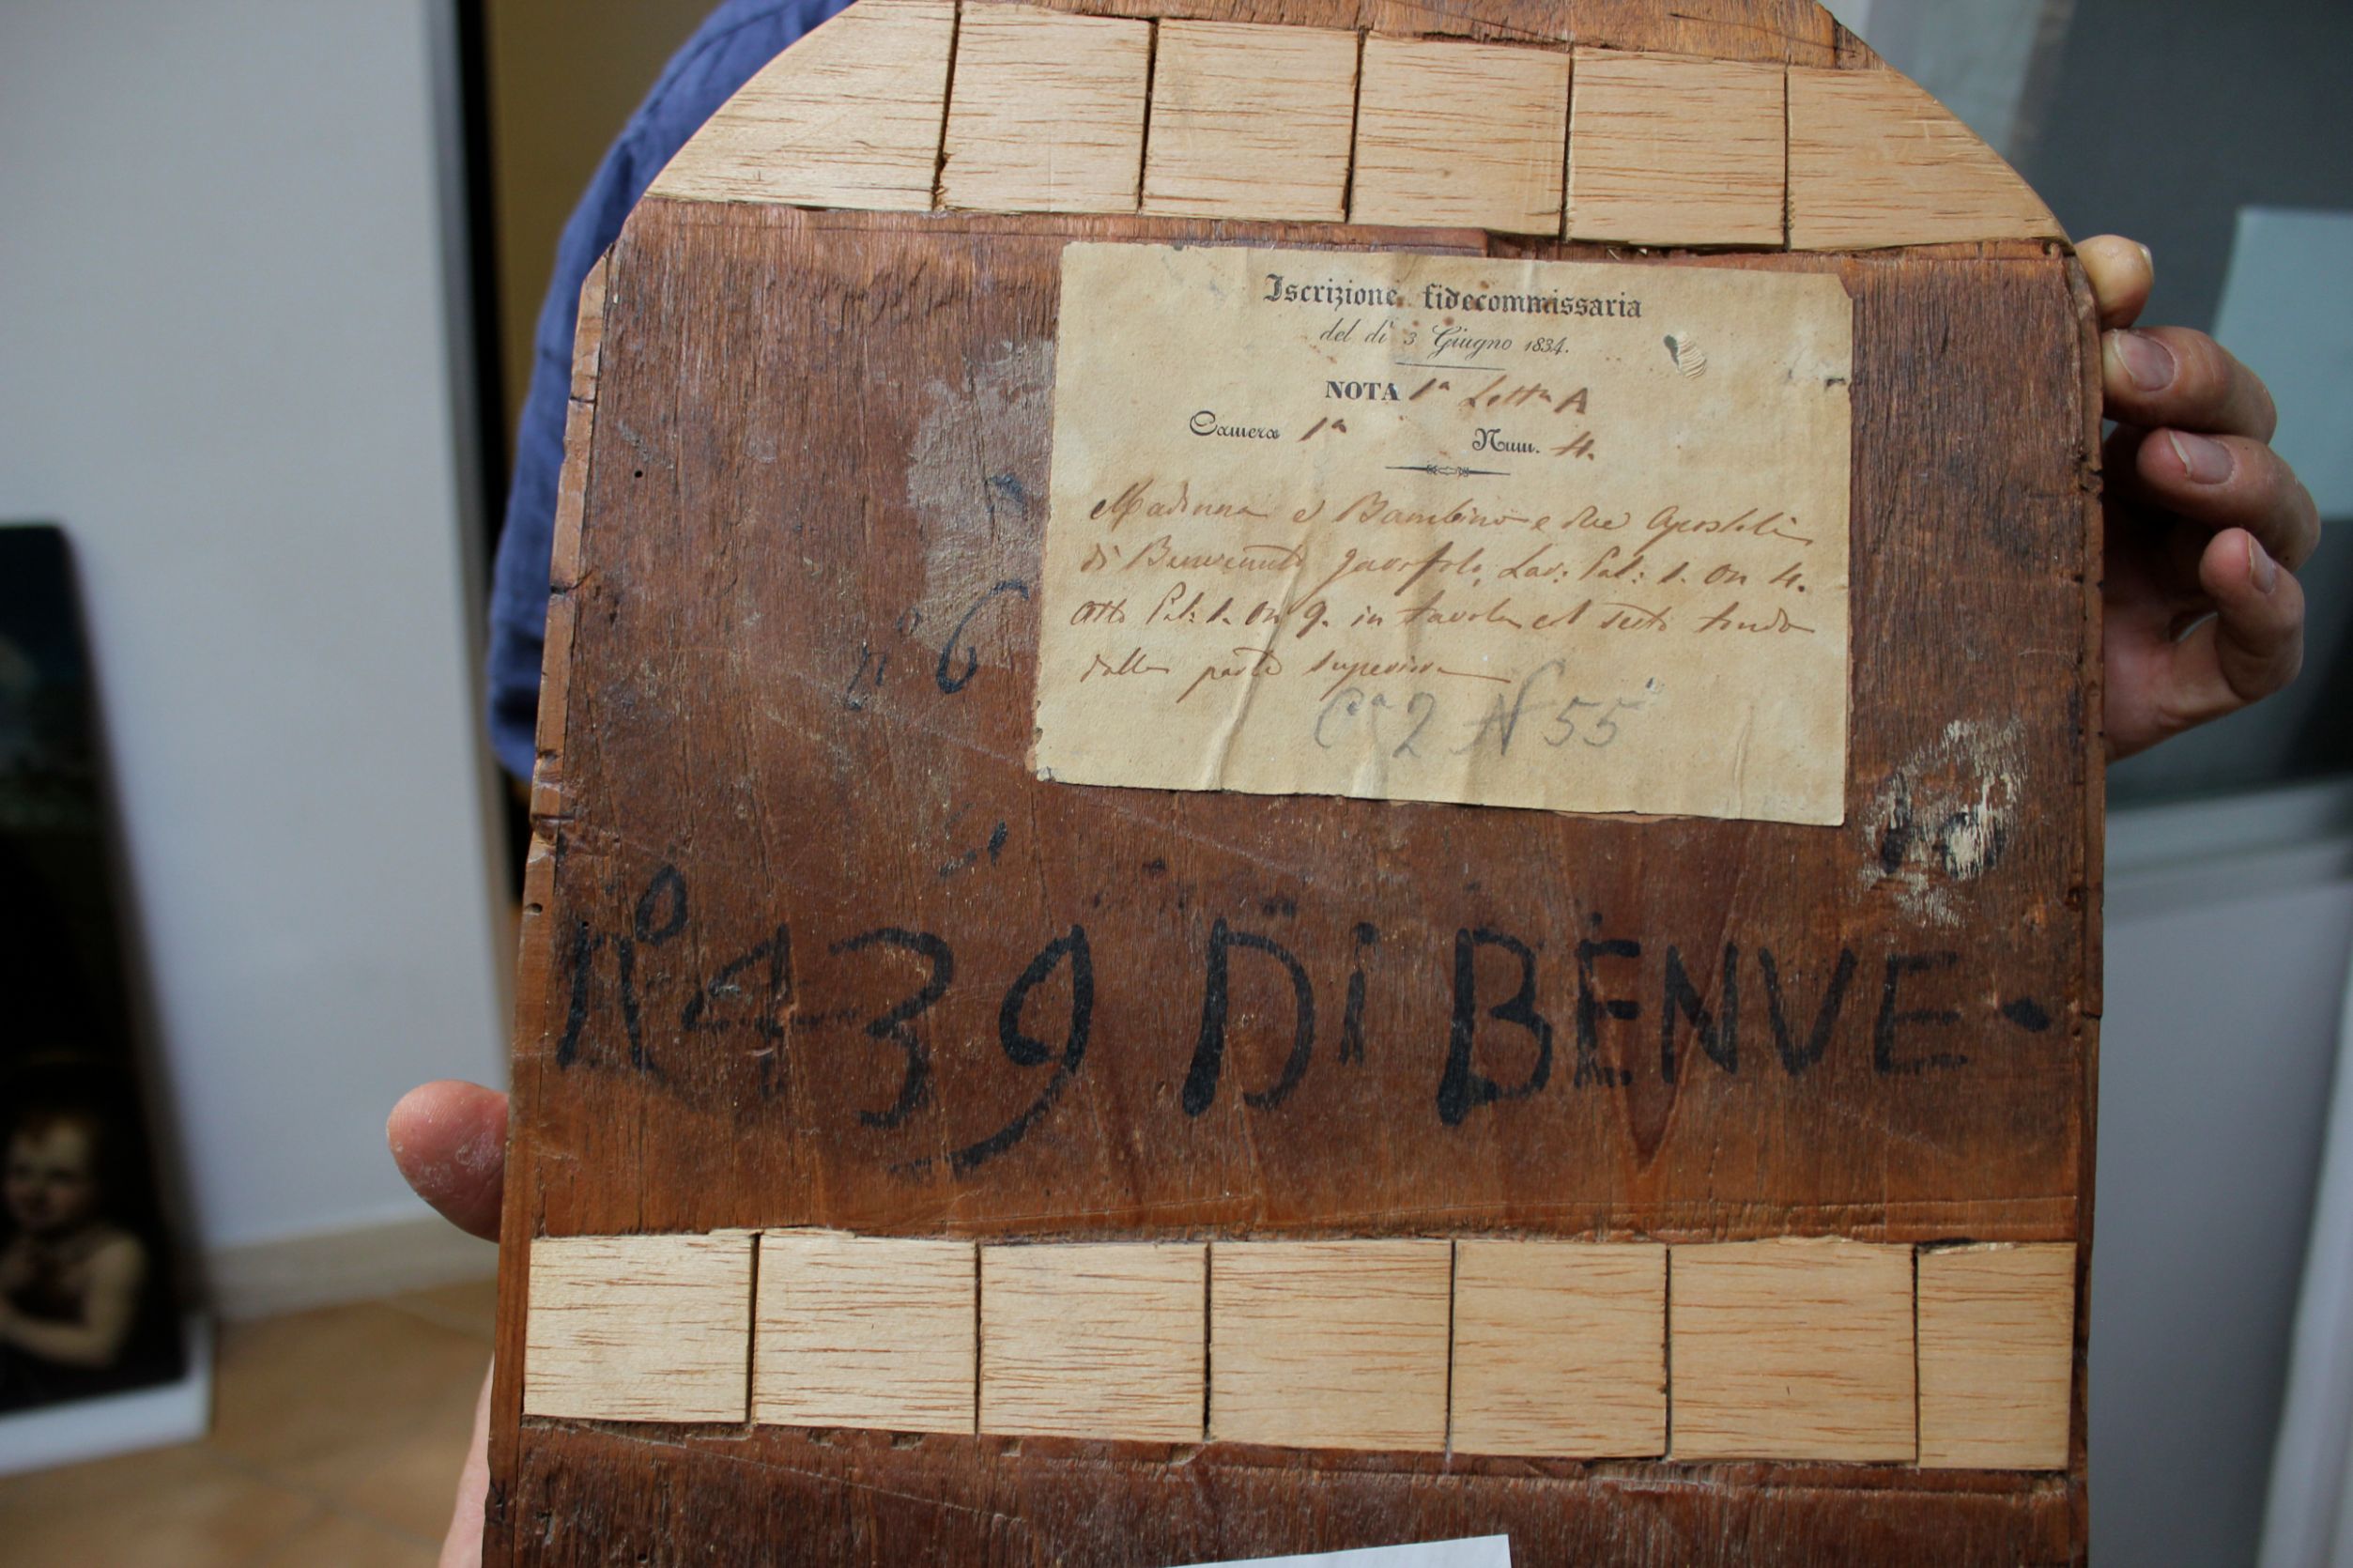 Iscrizione fidecommissaria
del dì 3 Giugno 1834.
NOTA 1ª Letta A
Camera 1ª Num. 4.
Madonna e Bambino e due Apostoli
di Benvenuto Garofolo, Lar: Pal: 1. On 4.
Alto Pal: 1. On 9. in tavola col sesto tondo
dalla parte superiore
Cª 2 N 55
n° 6
N° 439 Di BENVE-